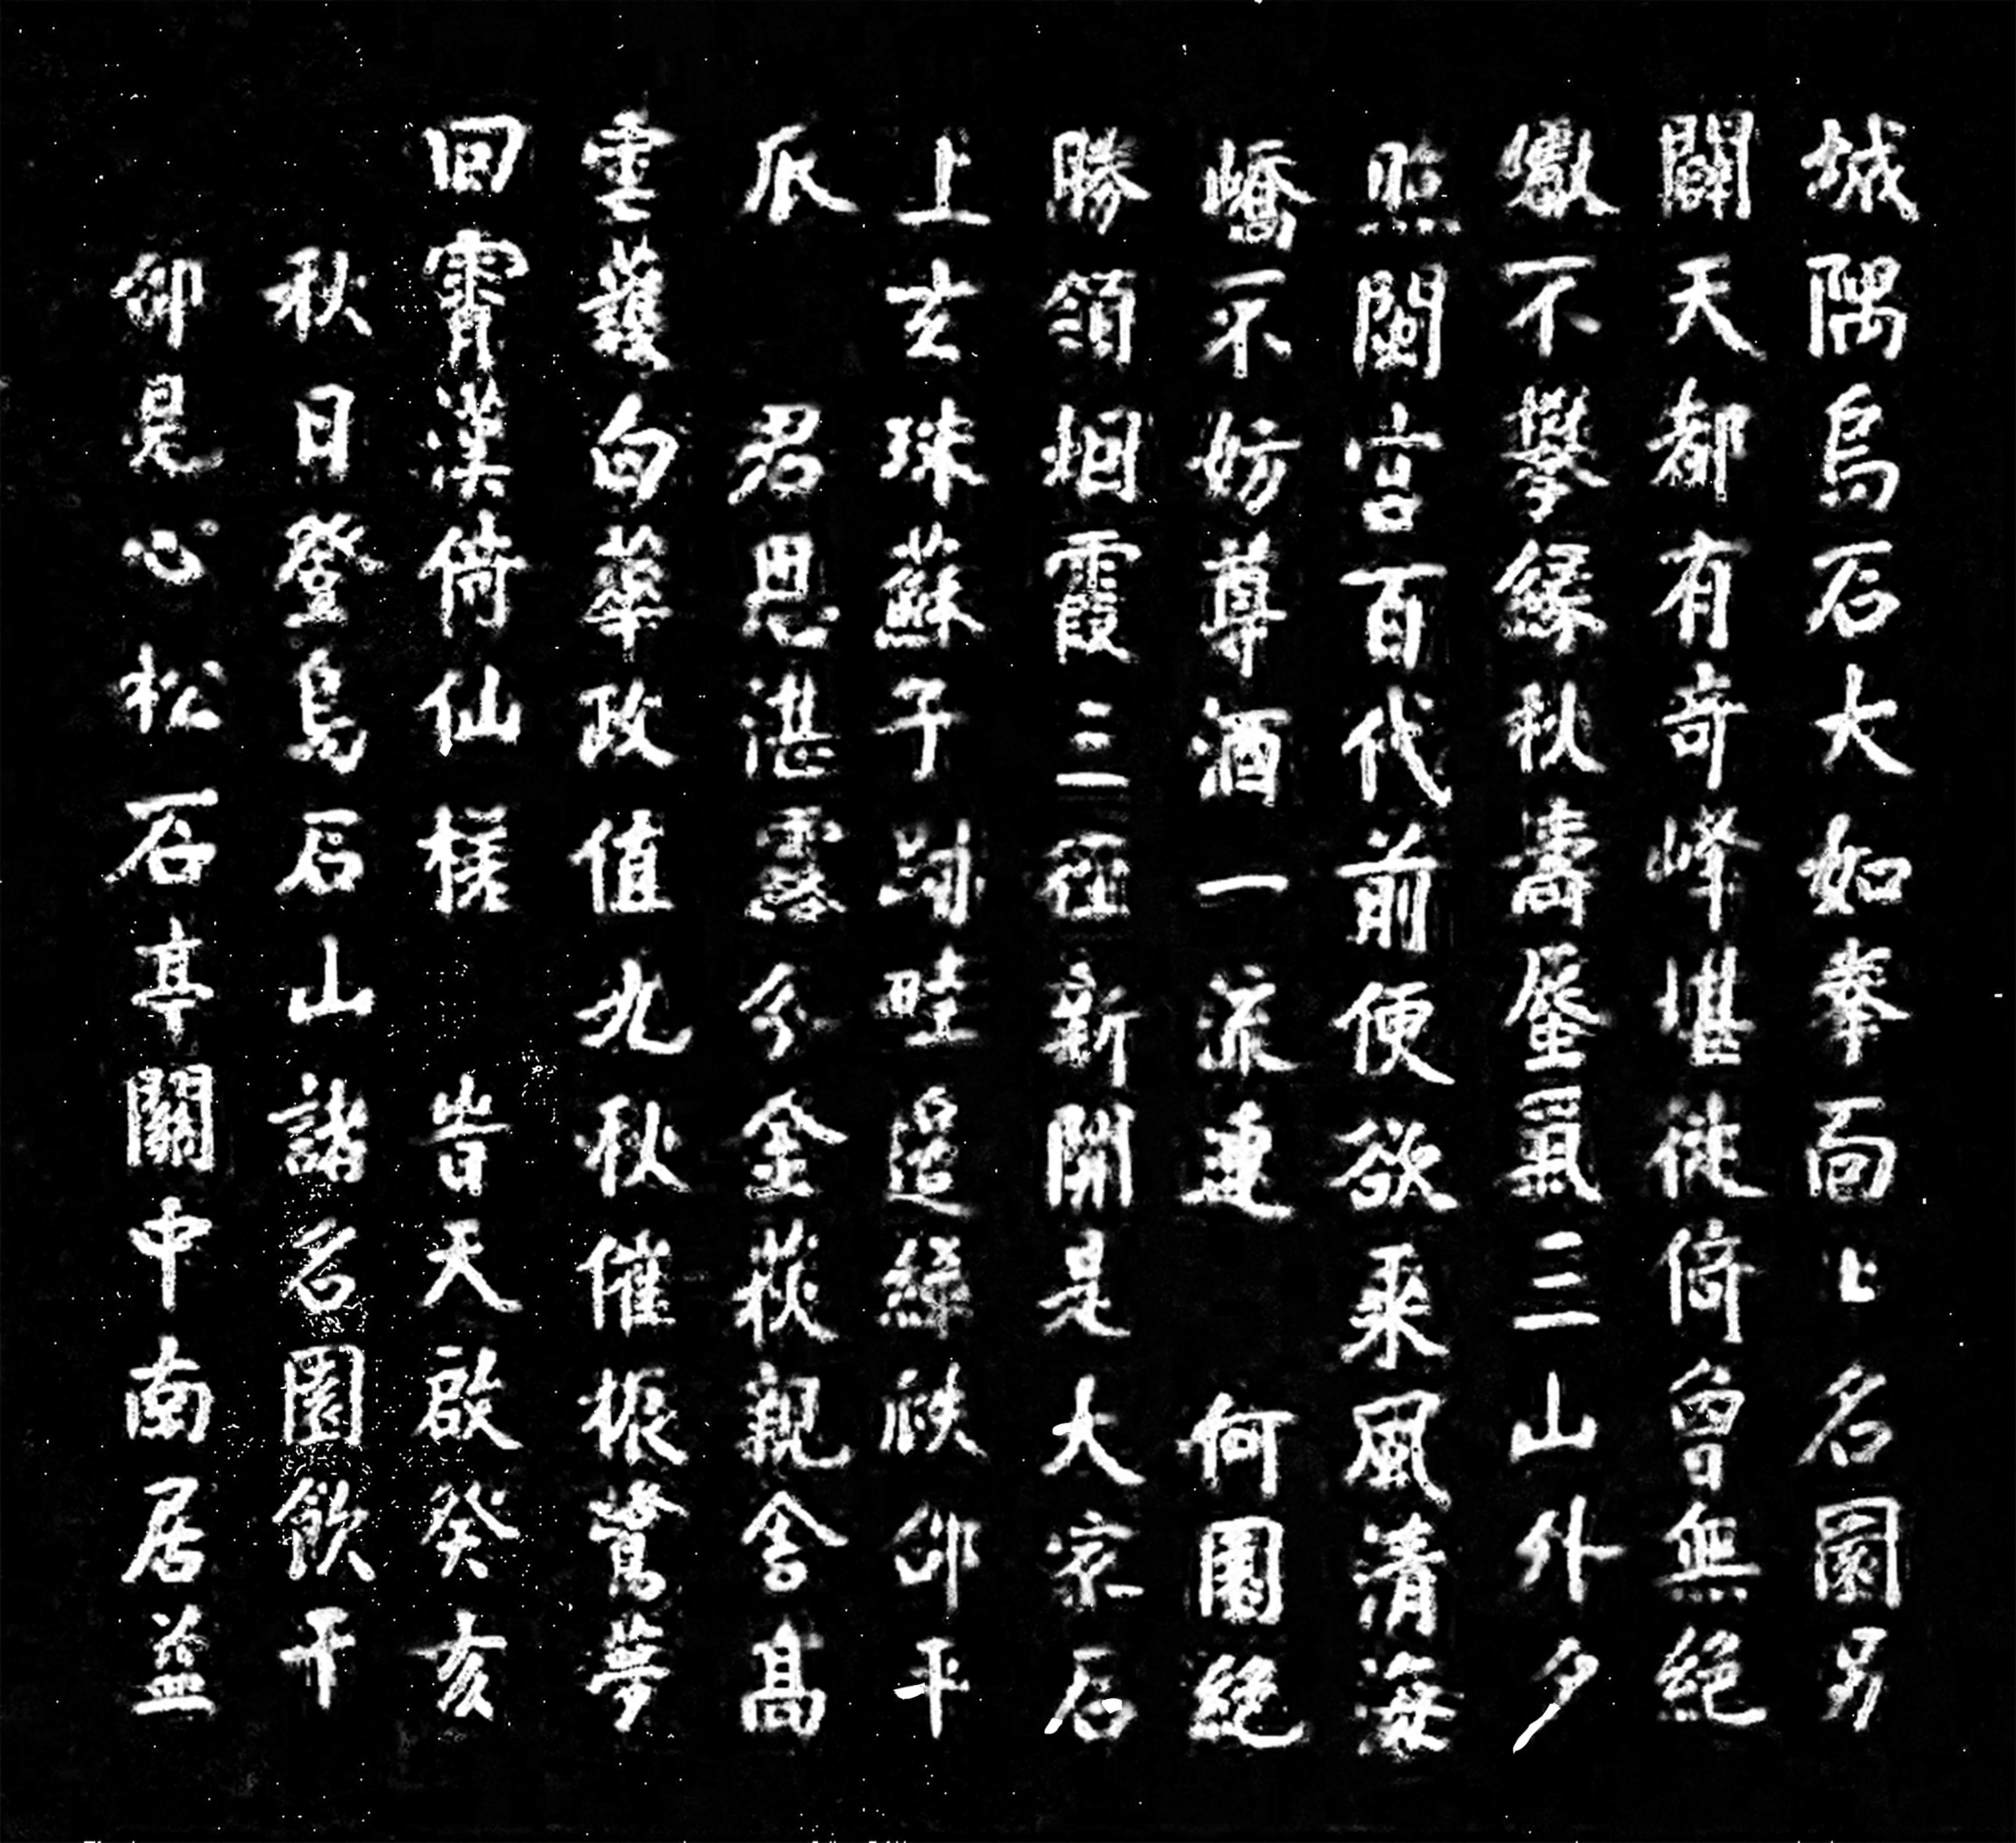 城隅烏石大如拳面匕名園另
闢天都有奇峰堪徙倚曾無絕
巘不攀緣秋濤蜃氣三山外夕
照閩宮百代前便欲乘風清海
嶠不妨尊酒一流連 何園絕
勝領烟霞三徑新開是大家石
上玄珠蘇子畦邊邵平
瓜 君恩湛露分金親舍高
雲護白華政值九秋催振鷺夢
回霄漢倚仙槎 旹天啟癸亥
秋日登烏石山諸名園飲于
邵見心松石亭關中南居益